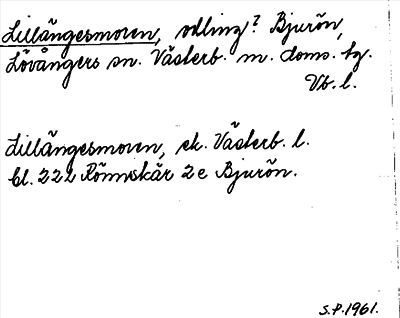 Lillängesmoren, odling? Bjurön,
Lövångers sn. Västerb. m. doms. tg.
Vb. l.
Lillängesmoren, ek. Västerb. l.
bl. 222 Rönnskär 2e Bjurön.
S.P. 1961.